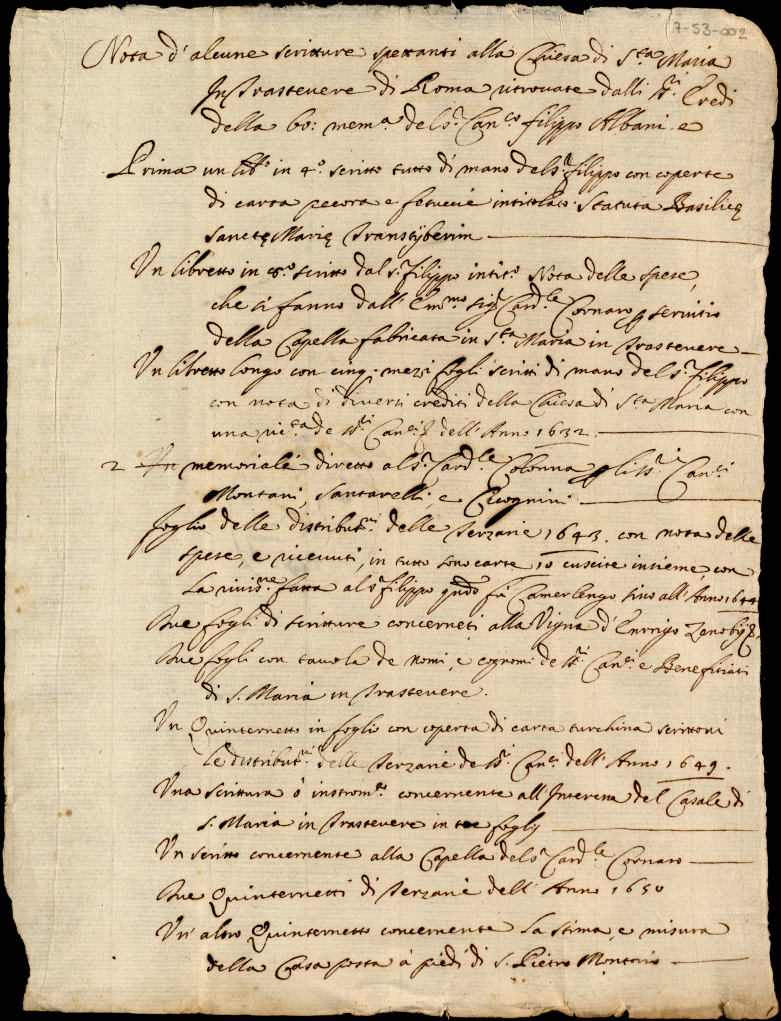 7-53-002
Nota d'alcune scritture spettanti alla Chiesa di S.ta Maria
In Trastevere di Roma ritrovate dalli SS.ri Eredi
della bo: mem.a del S.r Can.co filippo Albani. e
Prima un lib.o in 4.o scritto tutto di mano del S.r filippo con coperte
di carta pecora e fetuccie intitolato. Statuta Basilicę
Sanctę Marię Transtyberim
Un libretto in 8.o scritto dal S.r filippo intit.o Nota delle spese,
che si fanno dall' Em.mo Sig.r Card.le Cornaro p servitio
della Capella fabricata in S.ta Maria in Trastevere
Un libretto longo con cinq. mezzi fogli scritti di mano del S.r filippo
con nota di diversi crediti della Chiesa di S.ta Maria con
una ric.ta de SS.ri Can.ci dell' Anno 1632.
2 memoriale diretto al S.r Card.le Colonna p li SS.ri Can.ci
Montani, Santarelli e Cicognini
foglio delle distribut.ni delle Terzarie 1643. con nota delle
spese, e ricevuti, in tutto sono carte 10 cuscite insieme, con
la fatta al S.r filippo qndo fù Camerlengo sino all' Anno 1644
Due fogli di scritture concerneti alla Vigna d'Enrrigo Zenobij
Due fogli con tavola de nomi, e cognomi de SS.ri Can.ci e Benefitiati
di S. Maria in Trastevere.
Un Quinternetto in foglio con coperta di carta turchina scrittoni
le distribut.ni delle Terzarie de SS.ri Can.ci dell' Anno 1649.
Una scrittura ò instrom.to concernente all' Interena del Casale di
S. Maria in Trastevere in tre fogly
Un scritto concernente alla Capella del S.r Card.le Cornaro
Due Quinternetti di Terzarie dell' Anno 1650
Un' altro Quinternetto concernente la stima, e misura
della Casa posta à piedi di S. Pietro Montorio